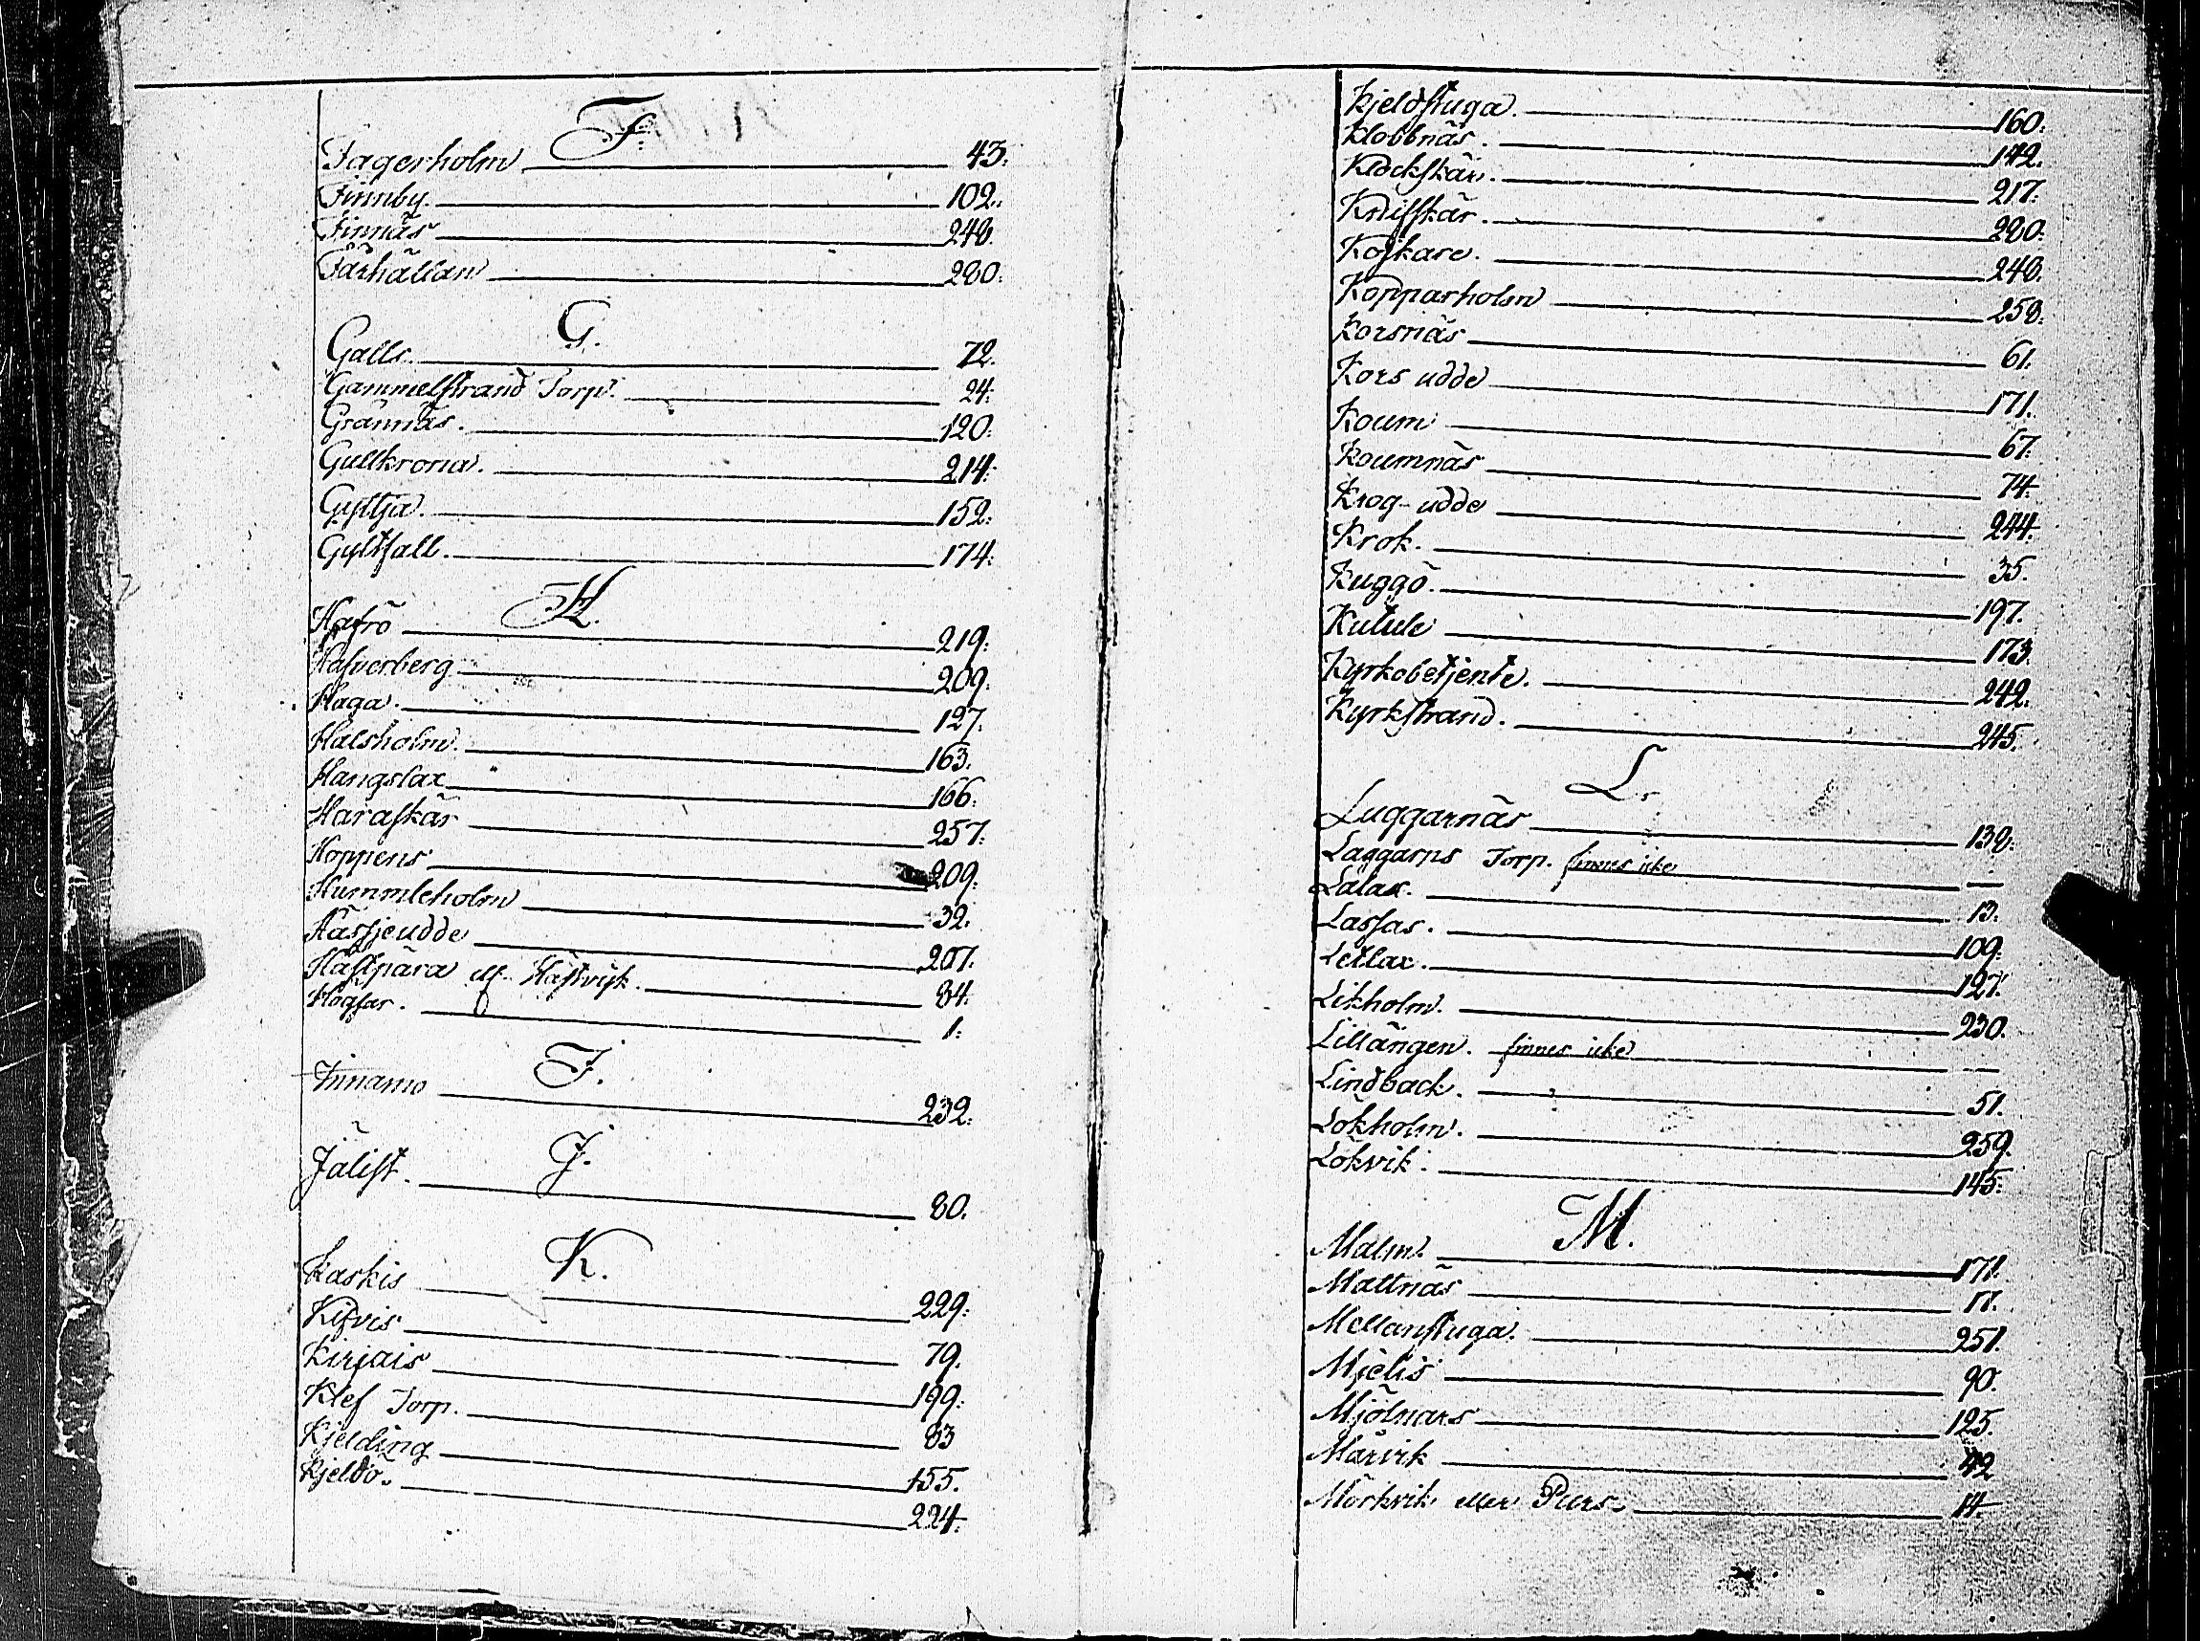 F.
Fagerholm 43.
Finnby. 102.
Finnäs 248.
Fårhällan 280.
G.
Galls. 72.
Gammelstrand Torp. 24.
Grännäs. 120.
Gullkrona. 214.
Gyltja. 152.
Gyltfall. 174.
H.
Hafrö 219.
Hafverberg 209.
Haga. 127.
Halsholm. 163.
Hangslax 166.
Haraskär 257.
Hoppens 209.
Hummleholm 32.
Hässjeudde 207.
Hästpära ell. Hästvik. 84.
Högsar. 1.
I.
Innamo 232.
J.
Jälist. 80.
K.
Kaskis 229.
Kifvis 79.
Kirjais 199.
Klef Torp. 83
Kjelding 155.
Kjeldö. 224.
Kjeldstuga. 160.
Klobbnäs. 142.
Klockskär. 217.
Knifskär. 280.
Koskare. 248.
Kopparholm 258.
Korsnäs 61.
Kors udde 171.
Koum 67.
Koumnäs 74.
Krog-udde 244.
Krok. 35.
Kuggö. 197.
Kutule 173.
Kyrkobetjente. 242.
Kyrkstrand. 245.
L.
Luggarnäs 138.
Laggarns Torp. finnes icke —
Lalax. 13.
Lassas. 109.
Letlax. 127.
Likholm. 230.
Lillängen. finnes icke —
Lindback. 51.
Lökholm. 259.
Lökvik. 145.
M.
Malm. 171.
Mattnäs 17.
Mellanstuga. 251.
Mjelis 90.
Mjölnars 125.
Märvik 42
Mörkvik eller Purs. 14.